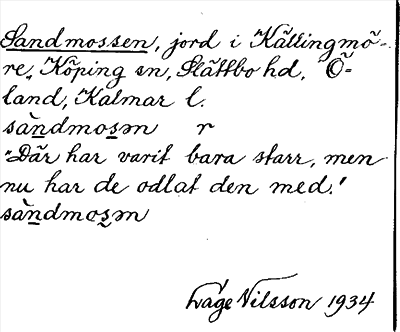 Sandmossen, jord i Källingmö-
re, Köping sn, Slättbo hd, Ö-
land, Kalmar l.
sàndmosәn r
"Där har varit bara starr, men
nu har de odlat den med."
sàndmosәn
Låge Nilsson 1934